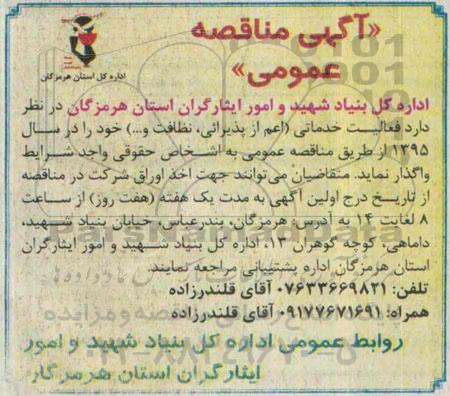 «آگهی مناقصه
عمومی»
اداره کل استان هرمزگان
اداره کل بنیاد شهید و امور ایثارگران استان هرمزگان در نظر
دارد فعالیت خدماتی (اعم از پذیرائی، نظافت و...) خود را در سال
۱۳۹۵ از طریق مناقصه عمومی به اشخاص حقوقی واجد شرایط
واگذار نماید. متقاضیان می‌توانند جهت اخذ اوراق شرکت در مناقصه
از تاریخ درج اولین آگهی به مدت یک هفته (هفت روز) از ساعت
۸ لغایت ۱۴ به آدرس: هرمزگان، بندرعباس، خیابان بنیاد شهید،
داماهی، کوچه گوهران ۱۳، اداره کل بنیاد شهید و امور ایثارگران
استان هرمزگان اداره پشتیبانی مراجعه نمایند.
تلفن: ۰۷۶۳۳۶۶۹۸۲۱ آقای قلندرزاده
همراه: ۰۹۱۷۷۶۷۱۶۹۱ آقای قلندرزاده
روابط عمومی اداره کل بنیاد شهید و امور
ایثارگران استان هرمزگان